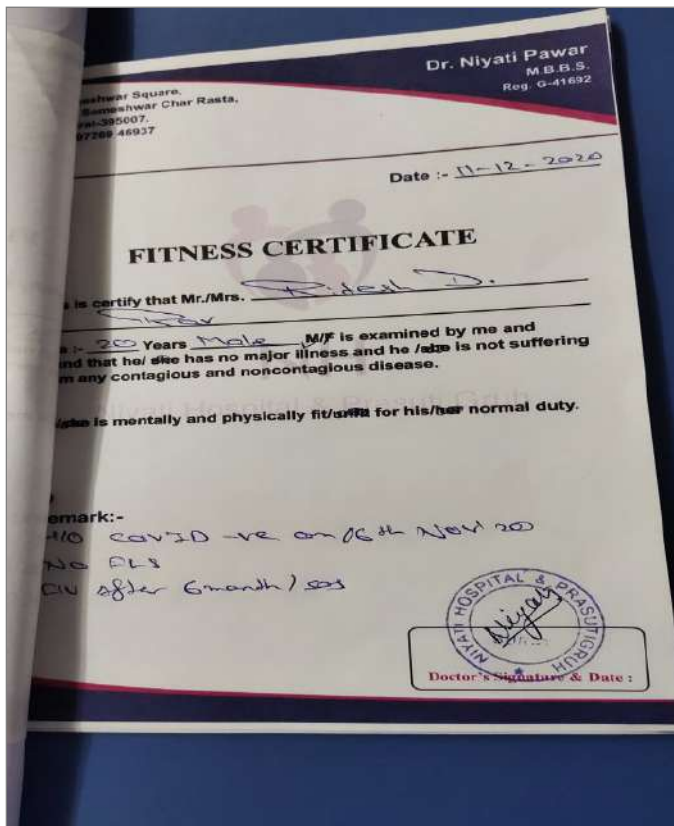 Dr. Niyati Pawar
M.B.B.S.
Reg. G-41692
eshwar Square,
Someshwar Char Rasta,
rat-395007.
97269 46937
Date :- 11-12-2020
FITNESS CERTIFICATE
s is certify that Mr./Mrs. Ritesh D.
20 Years Male M/F is examined by me and
nd that he/ she has no major illness and he /she is not suffering
m any contagious and noncontagious disease.
Niyati Hospital & Prasuti Gruh
/she is mentally and physically fit/unfit for his/her normal duty.
emark:-
H/O COVID -ve on 06th Nov' 20
No
after 6 month / sos
NIYATI HOSPITAL & PRASUTIGRUH
Niyati
Doctor's Signature & Date :